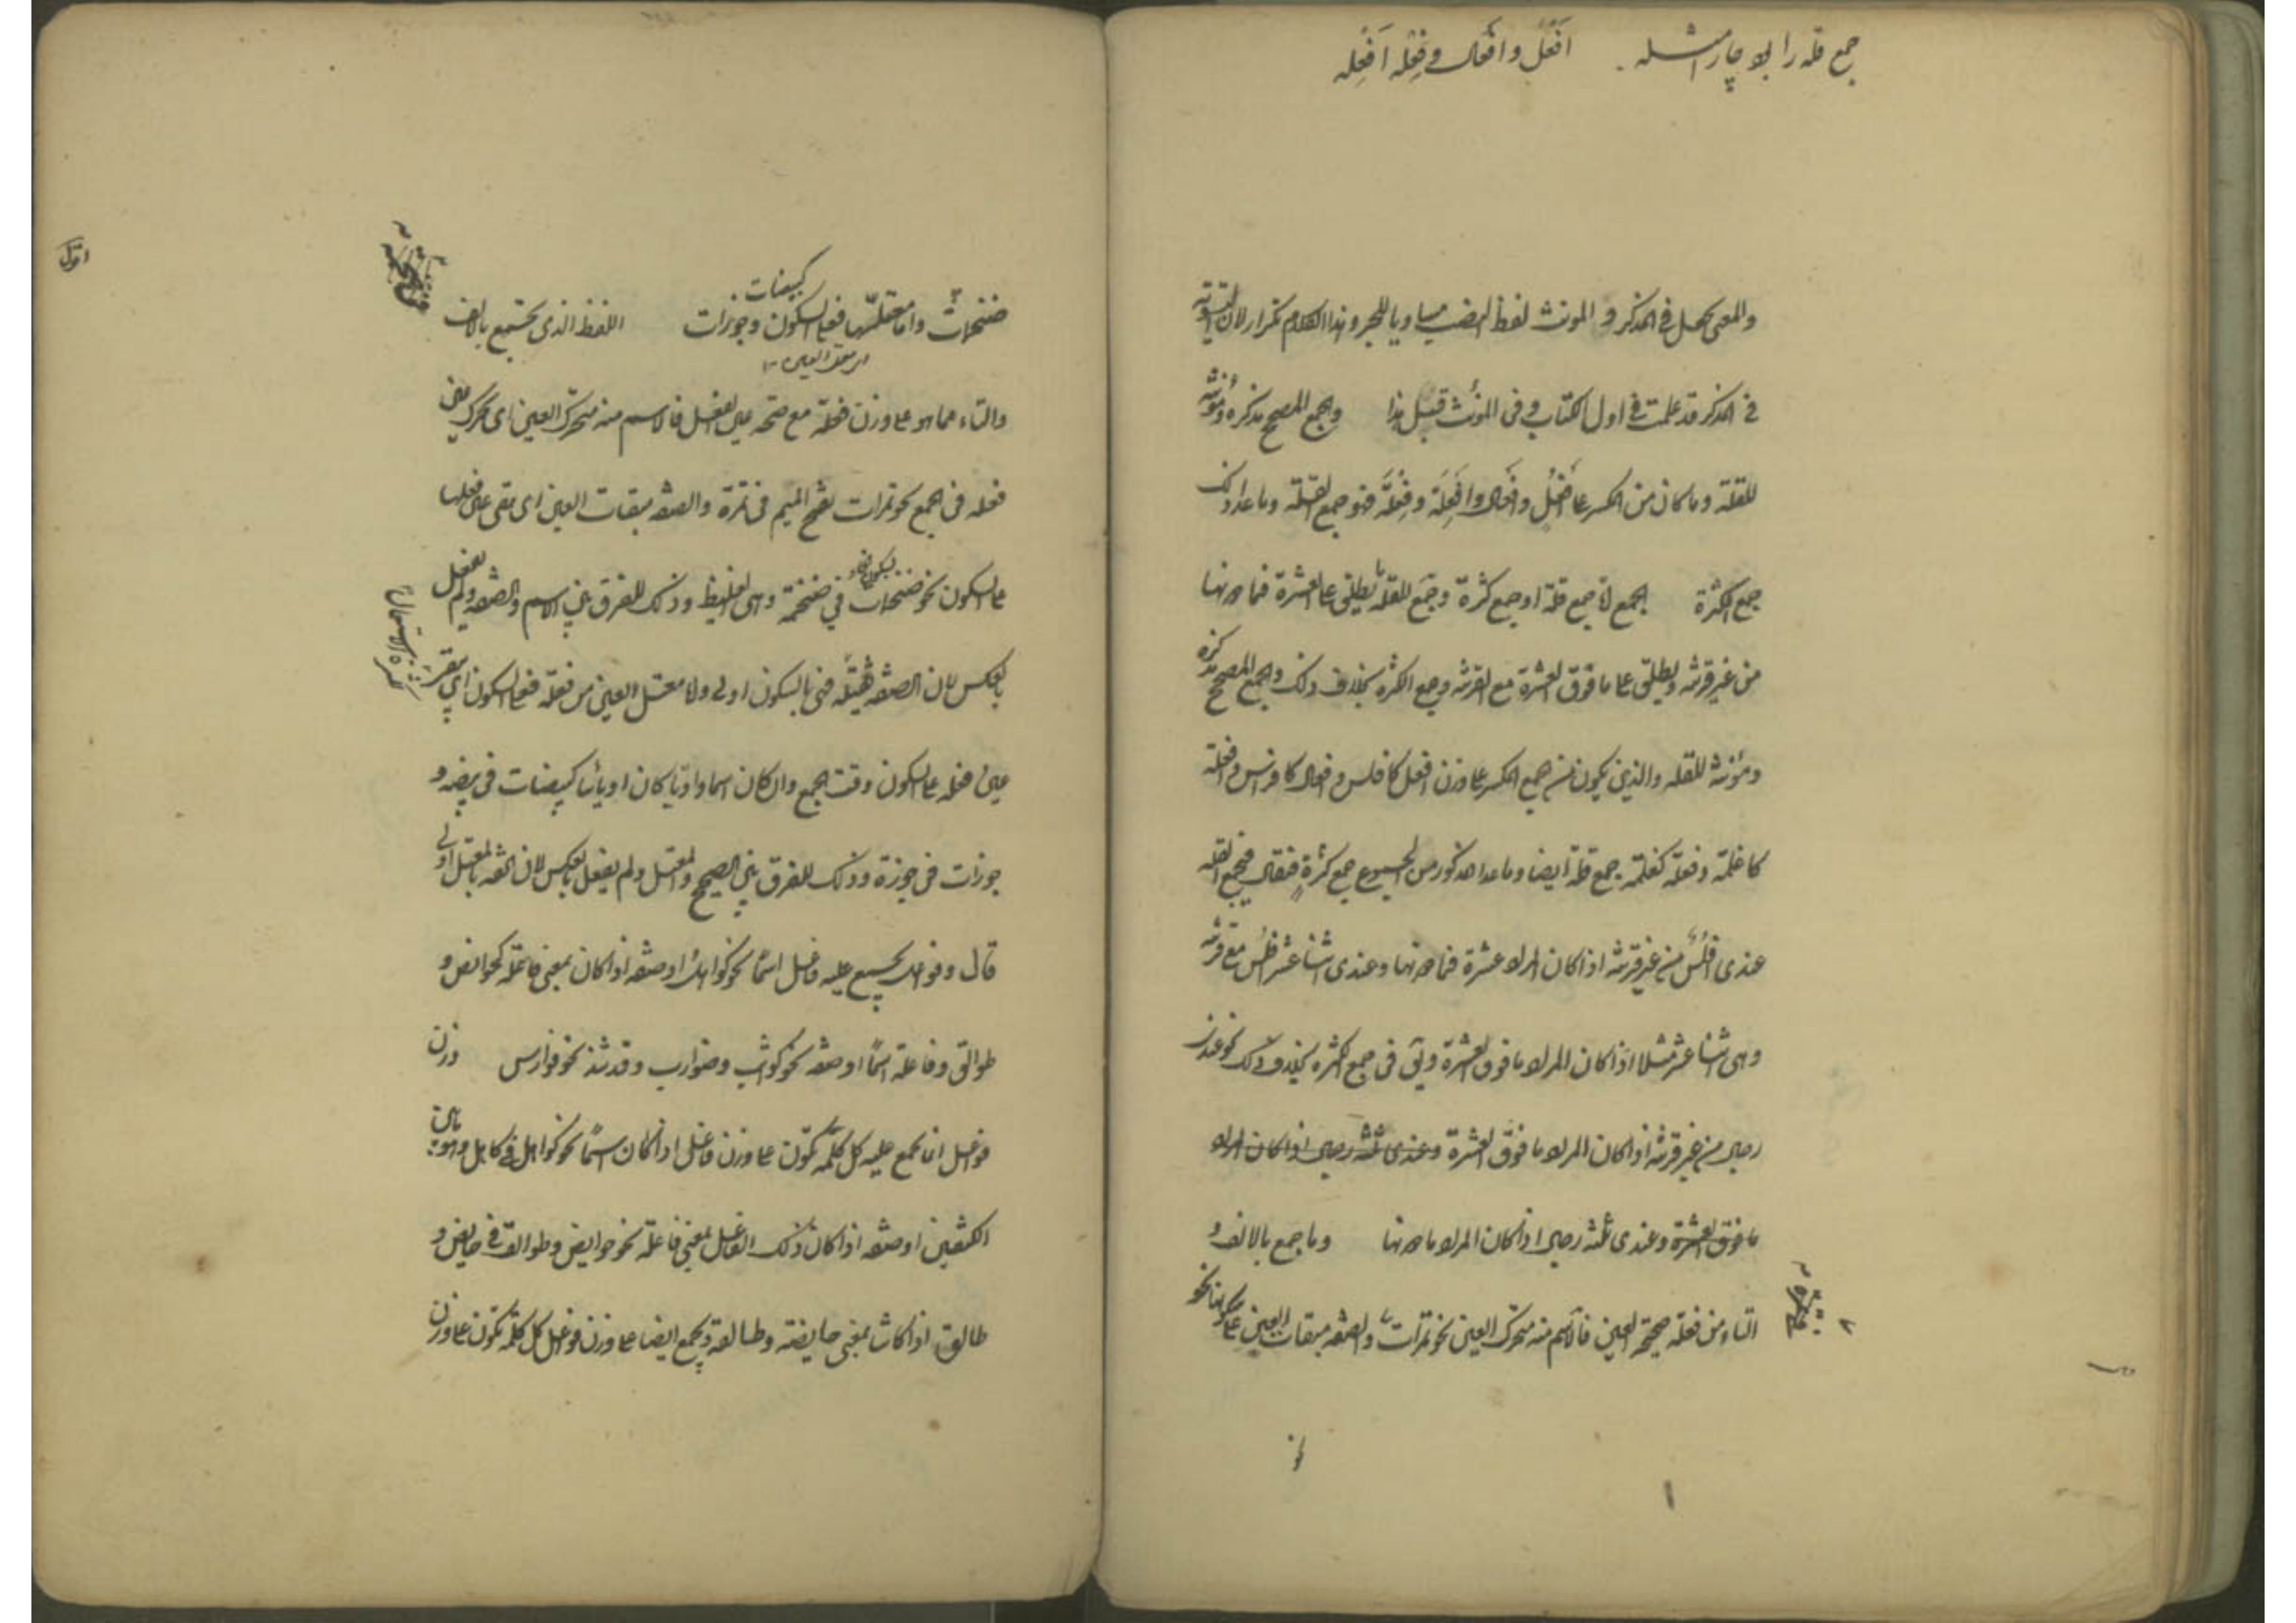 جمع قله را بود چار امثله افعُل وافعال وفِعْله اَفْعِله
والمعنى كعمل فى المذكر و المونث لفظ النصب مساويا للجر وهذا الكلام تكرار لان التسوية
فى المذكر قد علمت فى اول الكتاب وفى المونث قبيل هذا والجمع المصحح مذكره ومؤنثه
للقلة وما كان من المكسر على افعُل وافعال وافعِلة وفِعلَة فهو جمع القلة وما عدا ذلك
جمع الكثرة الجمع اما جمع قلة او جمع كثرة وجمع القلة يطلق على العشرة فما دونها
من غير قرينة ويطلق على ما فوق العشرة مع القرينة وجمع الكثرة بخلاف ذلك والجمع المصحح مذكره
ومؤنثه للقله والذى يكون من جمع المكسر على وزن افعل كافلس وافعال كافراس وافعلة
كاغلمة وفعلة كغلمة جمع قلة ايضا وما عدا المذكور من الجموع جمع كثرةٍ فيقال فى جمع القله
عندى افلُسٌ من غير قرينة اذا كان المراد عشرة فما دونها وعندى اثنا عشر افلُس مع قرينة
وهى اثنا عشر مثلا اذا كان المراد ما فوق العشرة ويق فى جمع الكثرة بخلاف ذلك نحو عندى
رجال من غير قرينة اذا كان المراد ما فوق العشرة وعندى ثلثه رجال اذا كان المراد
ما فوق العشرة وعندى ثلثه رجال اذا كان المراد ما دونها وما جمع بالالف و
التاء من فعلة صحيحة العين فالاسم منه متحرك العين نحو تمرات والصفه مبقات العين على سكونها نحو
ضخمات واما معتلّها فعلى السكون كبيضات وجوزات اللفظ الذى يجتمع بالالف
اى معتل العين
والتاء مما هو على وزن فعلة مع صحة عين الفعل فالاسم منه متحرك العين اى تحرك عين
فعله فى الجمع نحو تمرات بفتح الميم فى تمرة والصفه مبقات العين اى تبقى عين فعلها
على السكون نحو ضخمات بسكون الخاء فى ضخمة وهى الغليظ وذلك للفرق بين الاسم والصفه ولم يفعل
بالعكس لان الصفه ثقيلة فهى بالسكون اولى ولا معتل العين من فعلة فعلى السكون اى يقر
لكثرة الاستعمال
عين فعله على السكون وقت الجمع وان كان اسما واويّا كان او يائيا كبيضات فى بيضه و
جوزات فى جوزة وذلك للفرق بين الصحيح والمعتل ولم يفعل بالعكس لان الخفه بالمعتل اولى
قال وفواعل يجمع عليه فاعل اسمًا نحو كواهل او صفه اذا كان بمعنى فاعلة كحوايض و
طوالق وفاعلة اسمًا او صفه نحو كواثب وضوارب وقد شذ نحو فوارس وزن
فواعل انما يجمع عليه كل كلمة تكون على وزن فاعل اذا كان اسمًا نحو كواهل فى كاهل وهو ما بين
الكتفين او صفه اذا كان ذلك الفاعل بمعنى فاعلة نحو حوايض وطوالق فى حايض و
طالق اذا كانتا بمعنى حايضة وطالقة ويجمع ايضا على وزن فواعل كل كلمة تكون على وزن
اقول